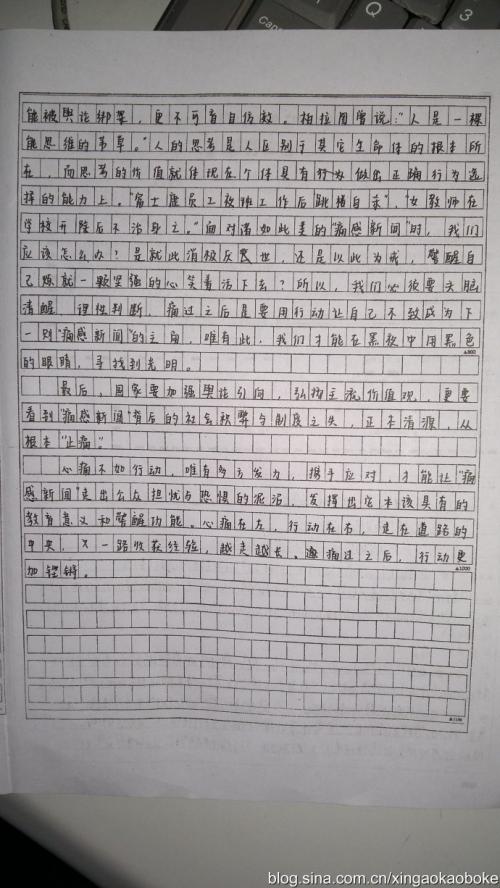 Q
能被舆论绑架，更不可盲目仿效。柏拉图曾说：“人是一棵
能思维的苇草。”人的思考是人区别于其它生命体的根本所
在，而思考的价值就体现在个体具有行为做出正确行为选
择的能力上。“富士康员工被拖工作后跳楼自杀”、“女教师在
学校开除后不治身亡。”面对诸如此类的“痛感新闻”时，我们
应该怎么办？是就此消极厌世，还是以此为戒，警醒自
己炼就一颗坚强的心笑着活下去？所以，我们必须要头脑
清醒、理性判断，痛过之后是要用行动让自己不致成为下
一则“痛感新闻”的主角，唯有此，我们才能在黑夜中用黑色
的眼睛，寻找到光明。
▲800
最后，国家要加强舆论引向，弘扬主流价值观，更要
看到“痛感新闻”背后的社会积弊与制度之失，正本清源，从
根本“止痛”。
心痛不如行动，唯有多方发力，携手应对，才能让“痛
感新闻”走出公众担忧与恐惧的泥沼，发挥出它本该具有的
教育意义和警醒功能。心痛在左，行动在右，走在道路的
中央，一路收获经验，越走越长。痛过之后，行动更
加铿锵。
▲1000
blog.sina.com.cn/xingaokaoboke